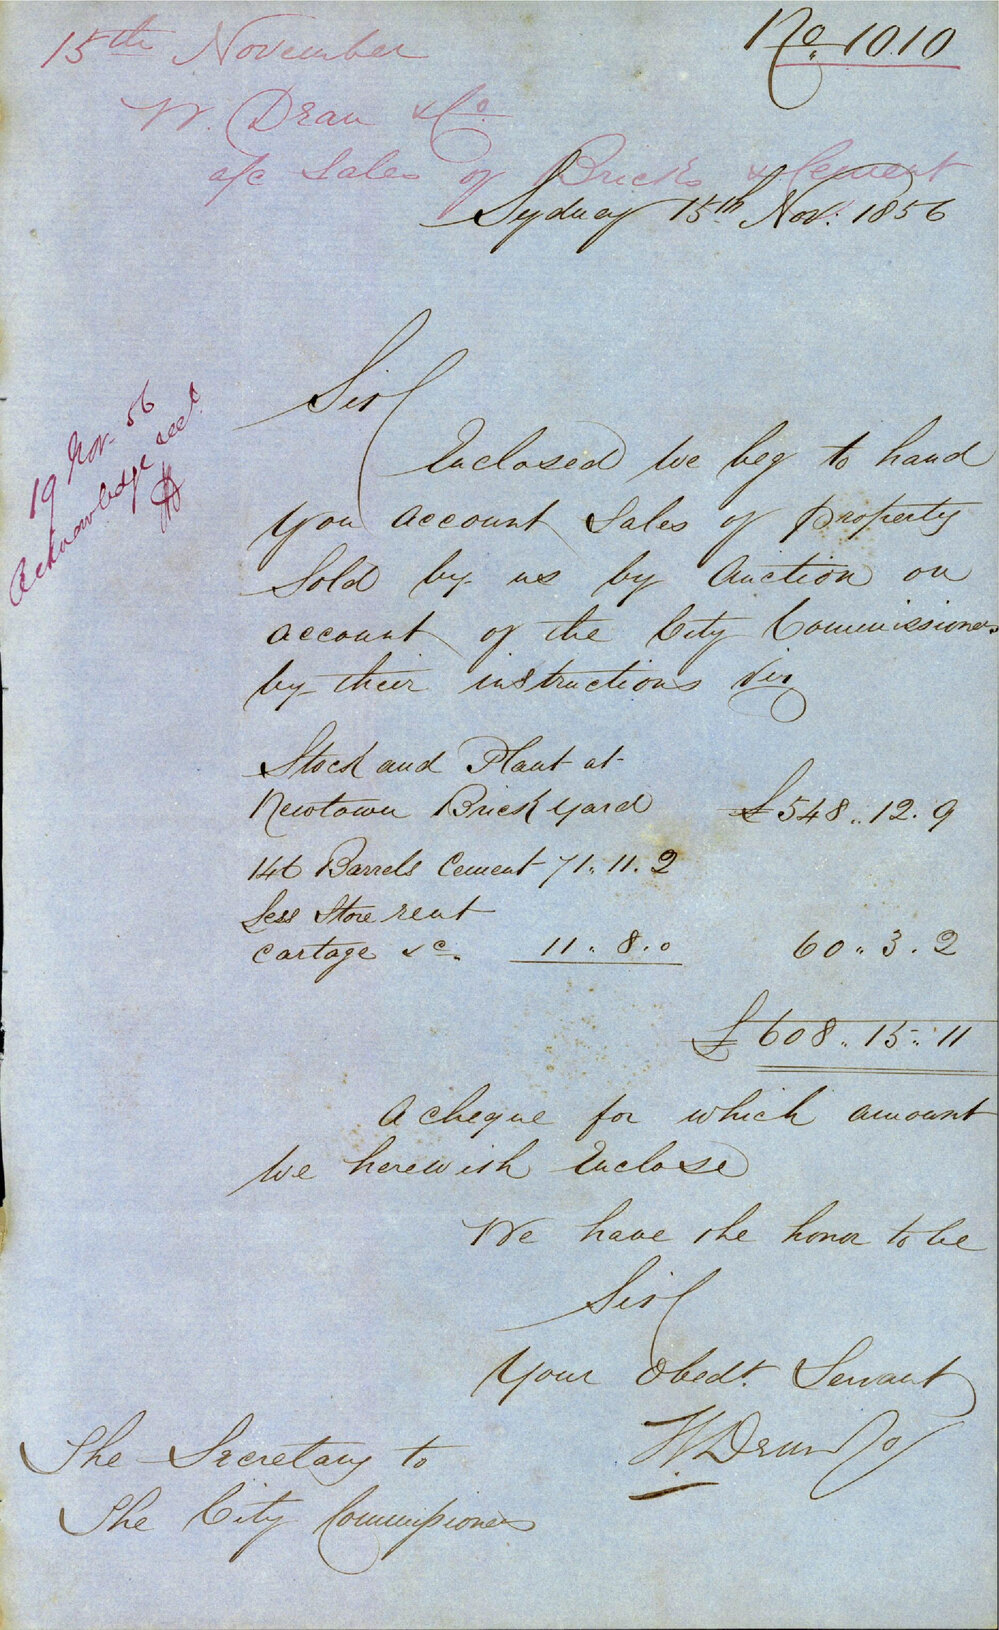 No. 1010
15th November
W. Dean & Co.
a/c Sales of Bricks & Cement
Sydney 15th Nov. 1856
19 Nov. 56
Acknowledge rect.
Sir
Enclosed we beg to hand
you account Sales of property
Sold by us by Auction on
account of the City Commissioners
by their instructions viz
Stock and Plant at
Newtown Brick yard £548..12.9
146 Barrels Cement 71..11.2
Less Store rent
cartage &c. 11..8.0 60..3.2
£608..15..11
A cheque for which amount
we herewith Enclose
We have the honor to be
Sir
Your Obedt. Servant
W Dean & Co
The Secretary to
The City Commissioners